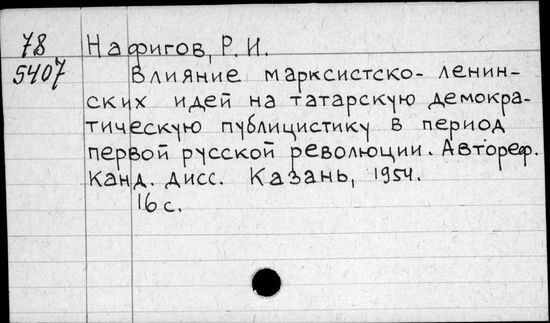 78 Нафигов, Р. И.
5407 Влияние марксистско-ленин-
ских идей на татарскую демокра-
тическую публицистику в период
первой русской революции. Автореф.
канд. дисс. Казань, 1954.
16 с.